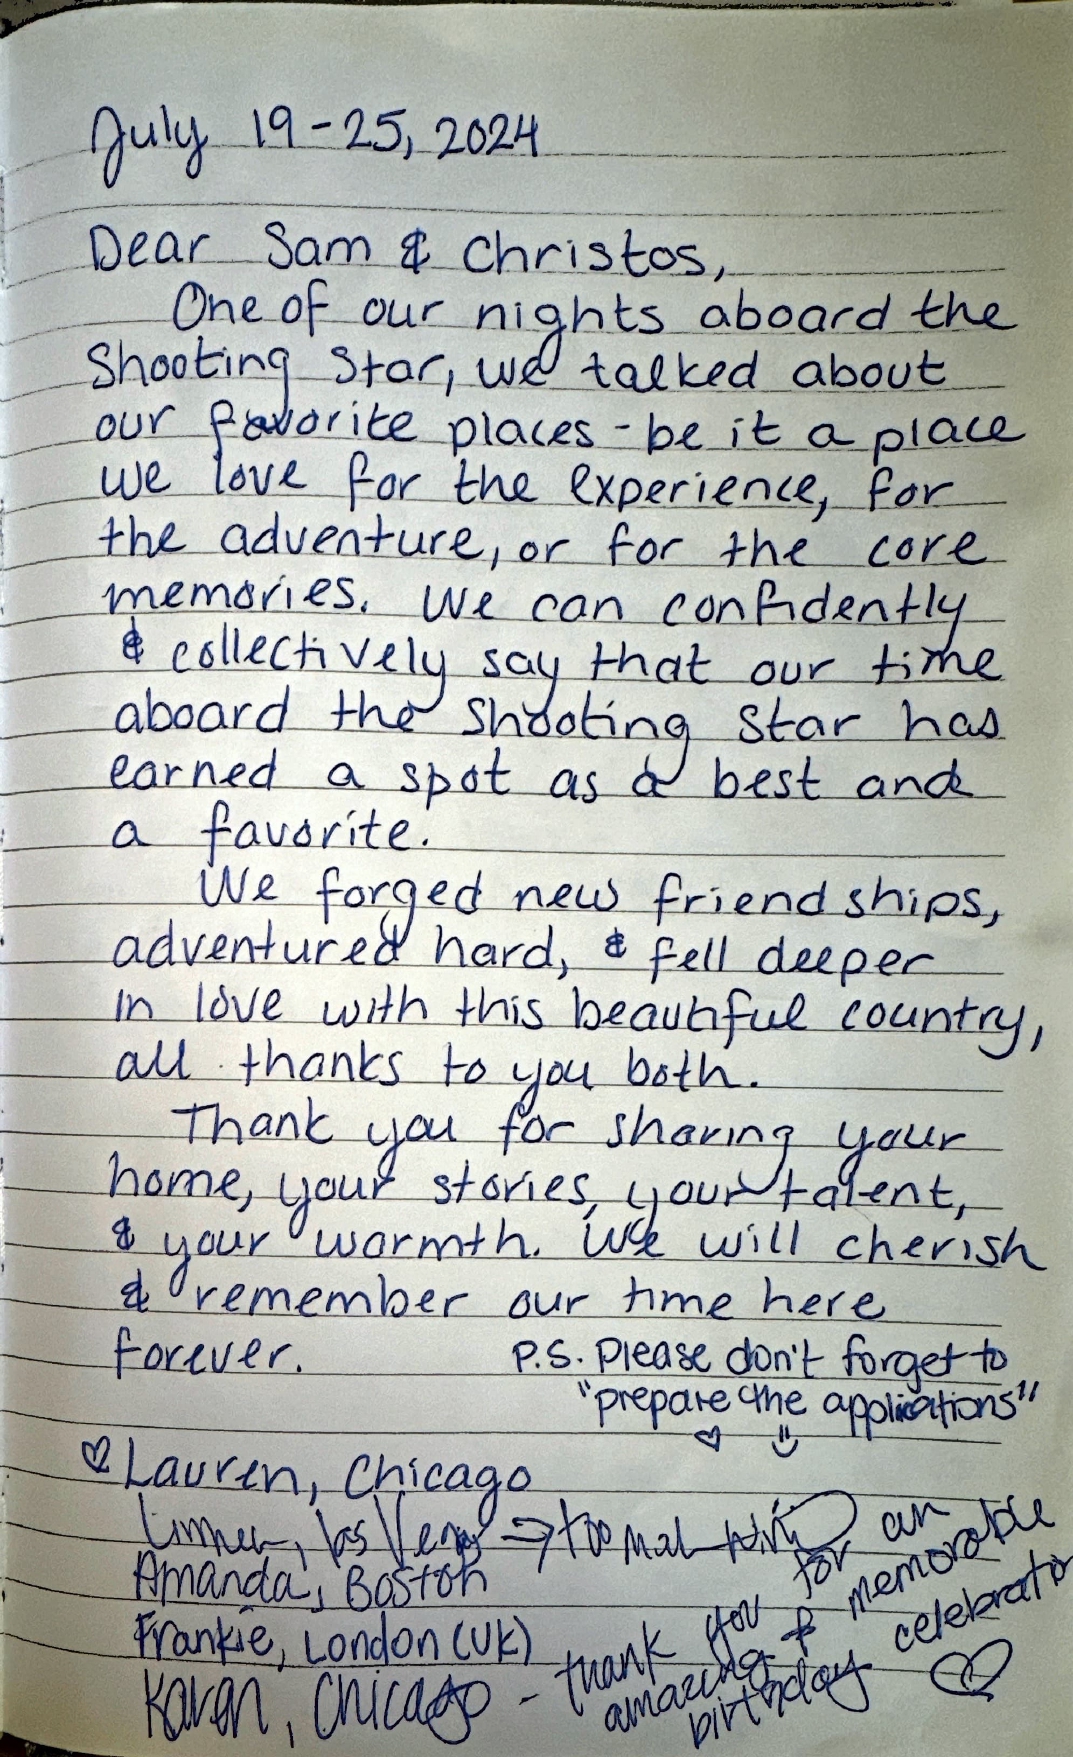 July 19-25, 2024
Dear Sam & Christos,
One of our nights aboard the
Shooting Star, we talked about
our favorite places - be it a place
we love for the experience, for
the adventure, or for the core
memories. We can confidently
& collectively say that our time
aboard the Shooting Star has
earned a spot as a best and
a favorite.
We forged new friendships,
adventured hard, & fell deeper
in love with this beautiful country,
all thanks to you both.
Thank you for sharing your
home, your stories, your talent,
& your warmth. We will cherish
& remember our time here
forever.
P.S. Please don't forget to
"prepare the applications"
♡ Lauren, Chicago
Las Vegas →
Amanda, Boston
Frankie, London (UK)
Karen, Chicago - thank you for an
amazing & memorable
birthday celebratio